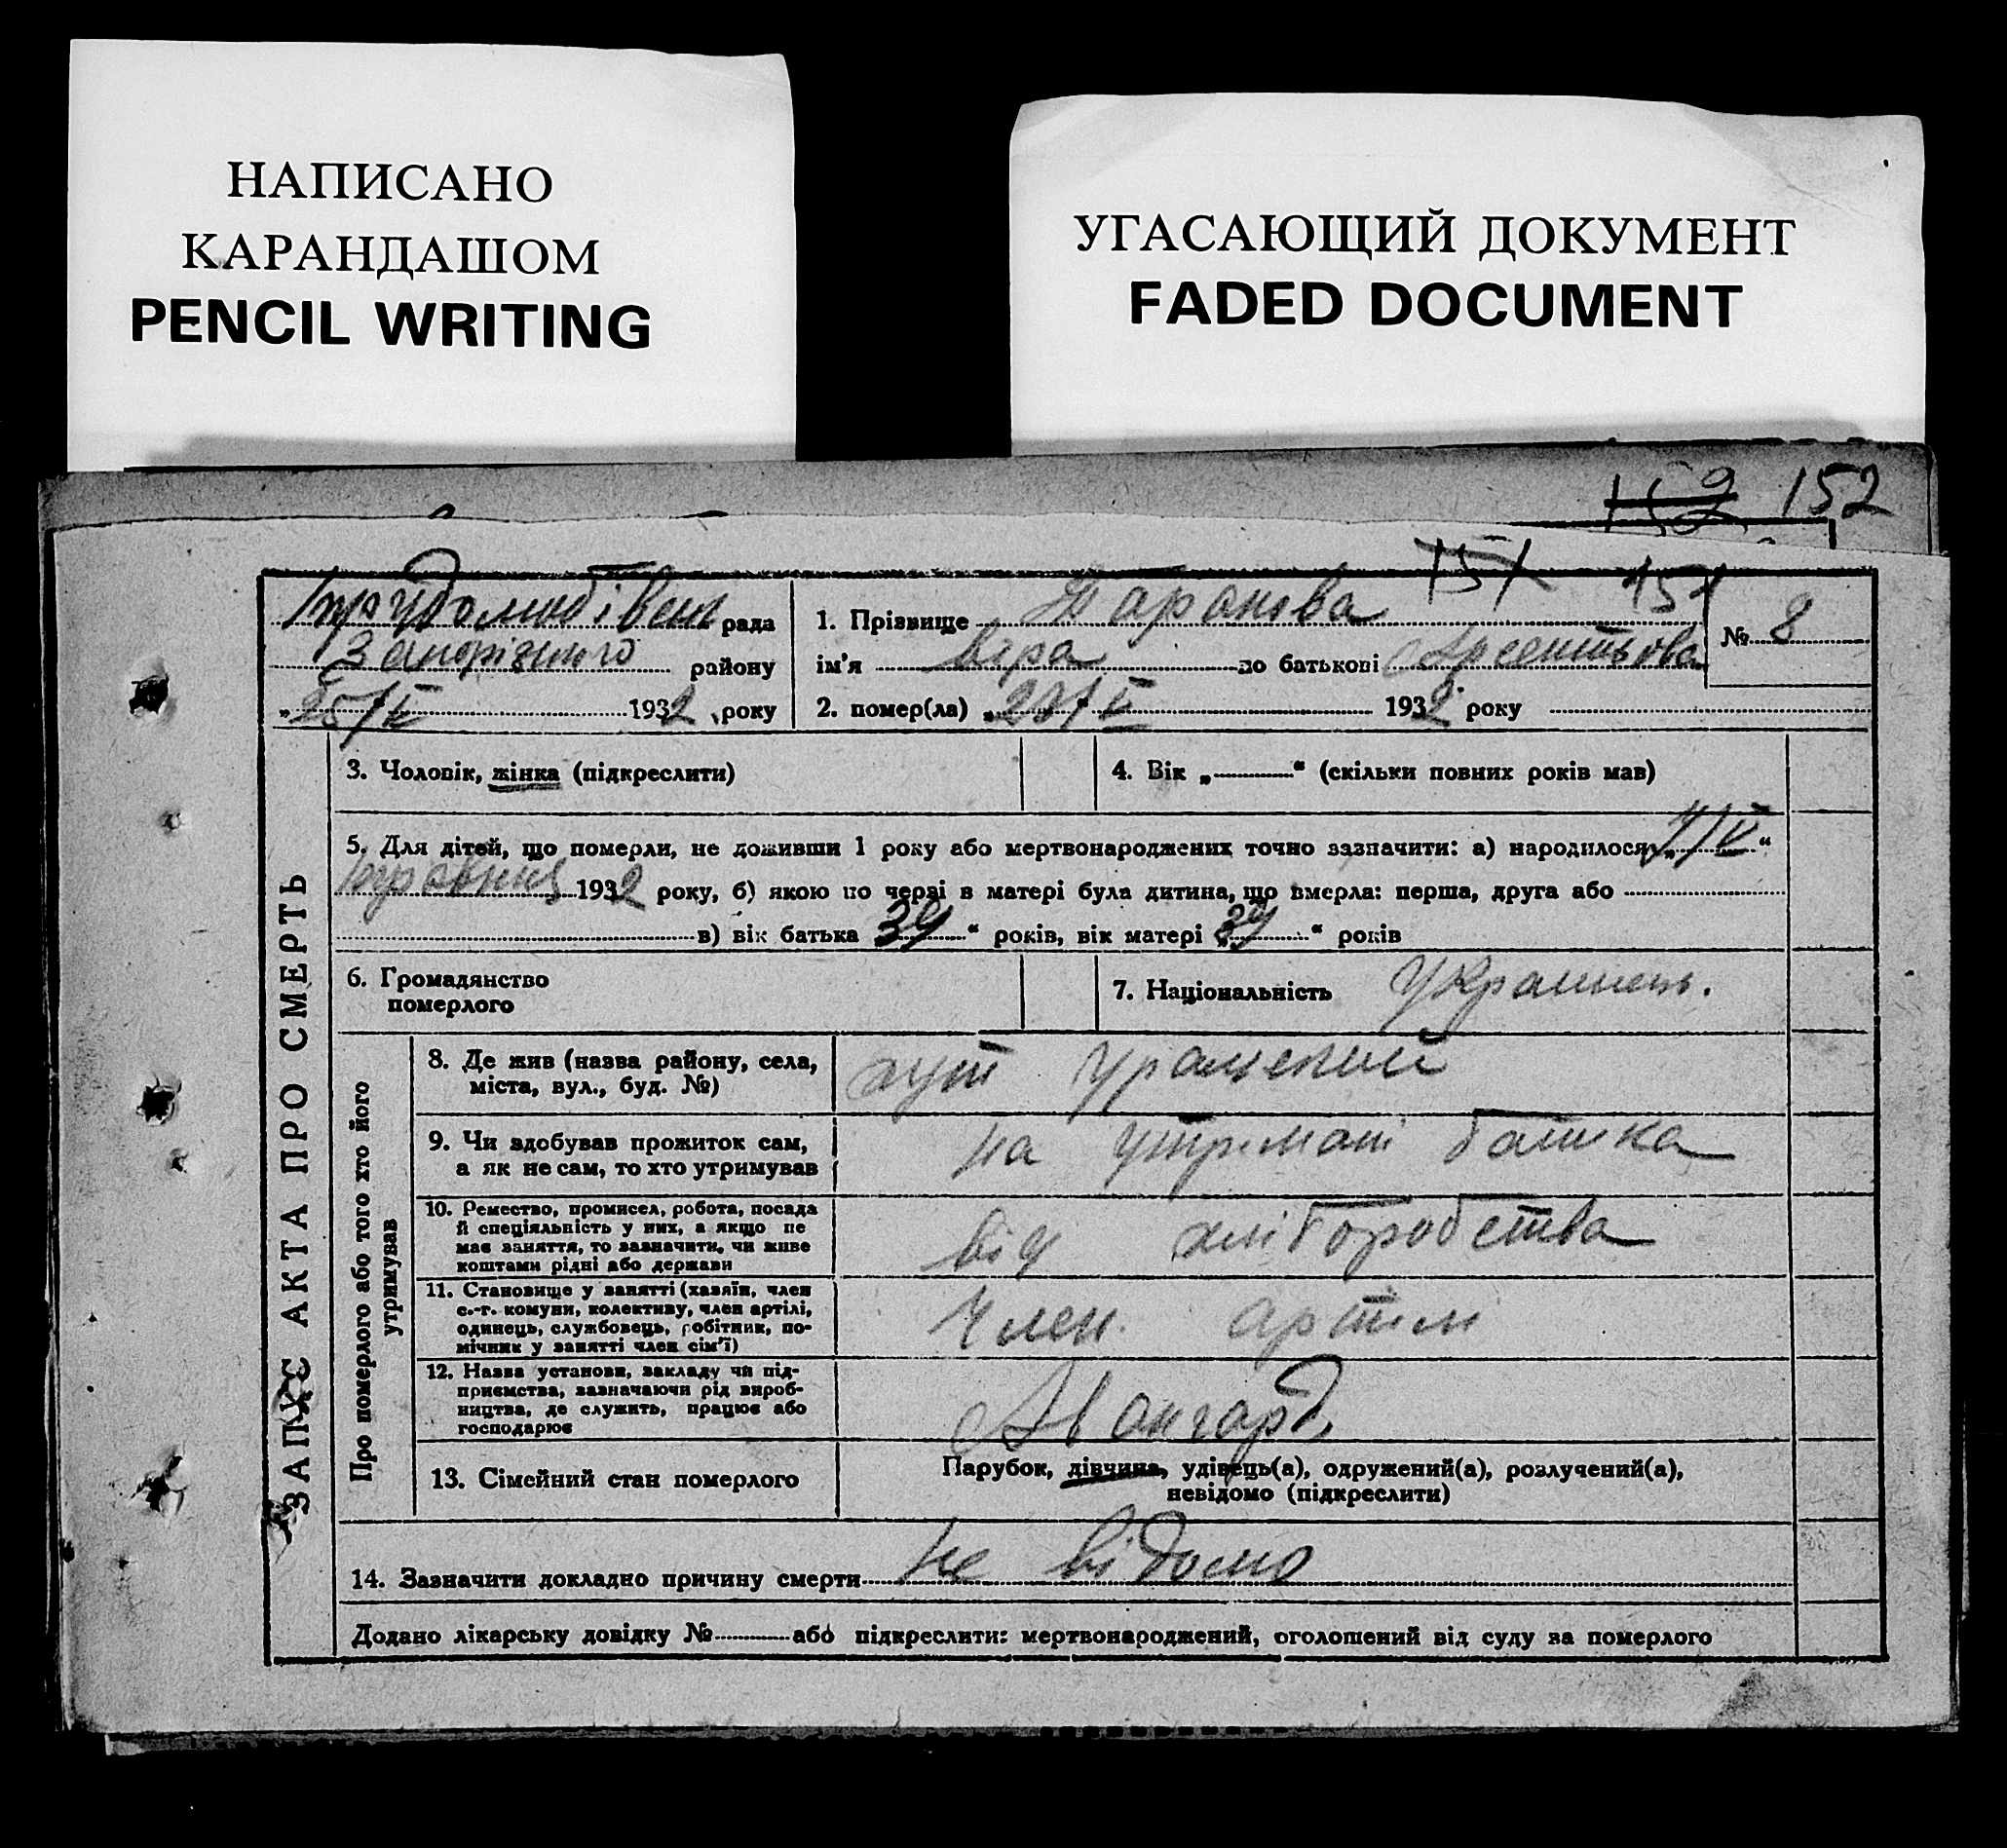 НАПИСАНО
КАРАНДАШОМ
PENCIL WRITING
УГАСАЮЩИЙ ДОКУМЕНТ
FADED DOCUMENT
152 152
151 151
рада
Запорізького району
„25/V 1932 року
1. Прізвище Таранова
ім'я Вєра по батькові
2. помер(ла) „ /V 1932 року
№ 8
ЗАПИС АКТА ПРО СМЕРТЬ
3. Чоловік, жінка (підкреслити)
4. Вік „ “ (скільки повних років мав)
5. Для дітей, що померли, не доживши 1 року або мертвонароджених точно зазначити: а) народилося „ /V “
1932 року, б) якою по черзі в матері була дитина, що вмерла: перша, друга або
в) вік батька 39 “ років, вік матері „39 “ років
6. Громадянство
померлого
7. Національність Українець.
Про померлого або того хто його
утримував
8. Де жив (назва району, села,
міста, вул., буд. №)
хут
9. Чи здобував прожиток сам,
а як не сам, то хто утримував
на утримані батька
10. Ремество, промисел, робота, посада
й спеціяльність у них, а якщо не
має заняття, то зазначити, чи живе
коштами рідні або держави
від хліборобства
11. Становище у занятті (хазяїн, член
с.-г. комуни, колективу, член артілі,
одинець, службовець, робітник, по-
мічник у занятті член сім'ї)
Член артілі
12. Назва установи, закладу чи під-
приємства, зазначаючи рід вироб-
ництва, де служить, працює або
господарює
Авангард
13. Сімейний стан померлого
Парубок, дівчина, удівець(а), одружений(а), розлучений(а),
невідомо (підкреслити)
14. Зазначити докладно причину смерти не відомо
Додано лікарську довідку № або підкреслити: мертвонароджений, оголошений від суду за померлого